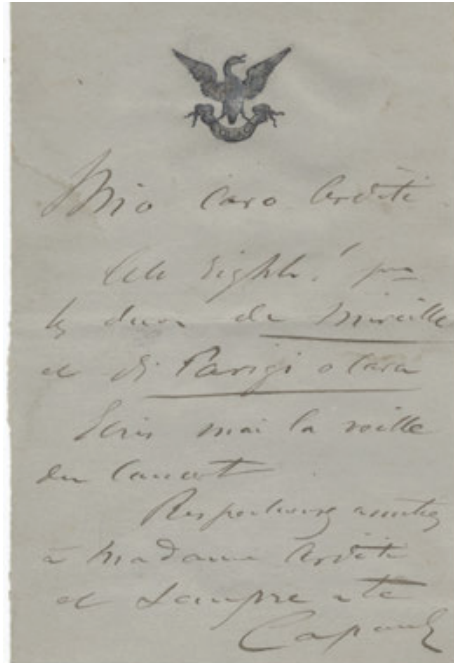 Mio caro Arditi
All right! pour
les duos de Mireille
et di Parigi o cara
Ecris moi la veille
du concert
Respectueuses amitiés
à Madame Arditi
et sempre a te
Capoul